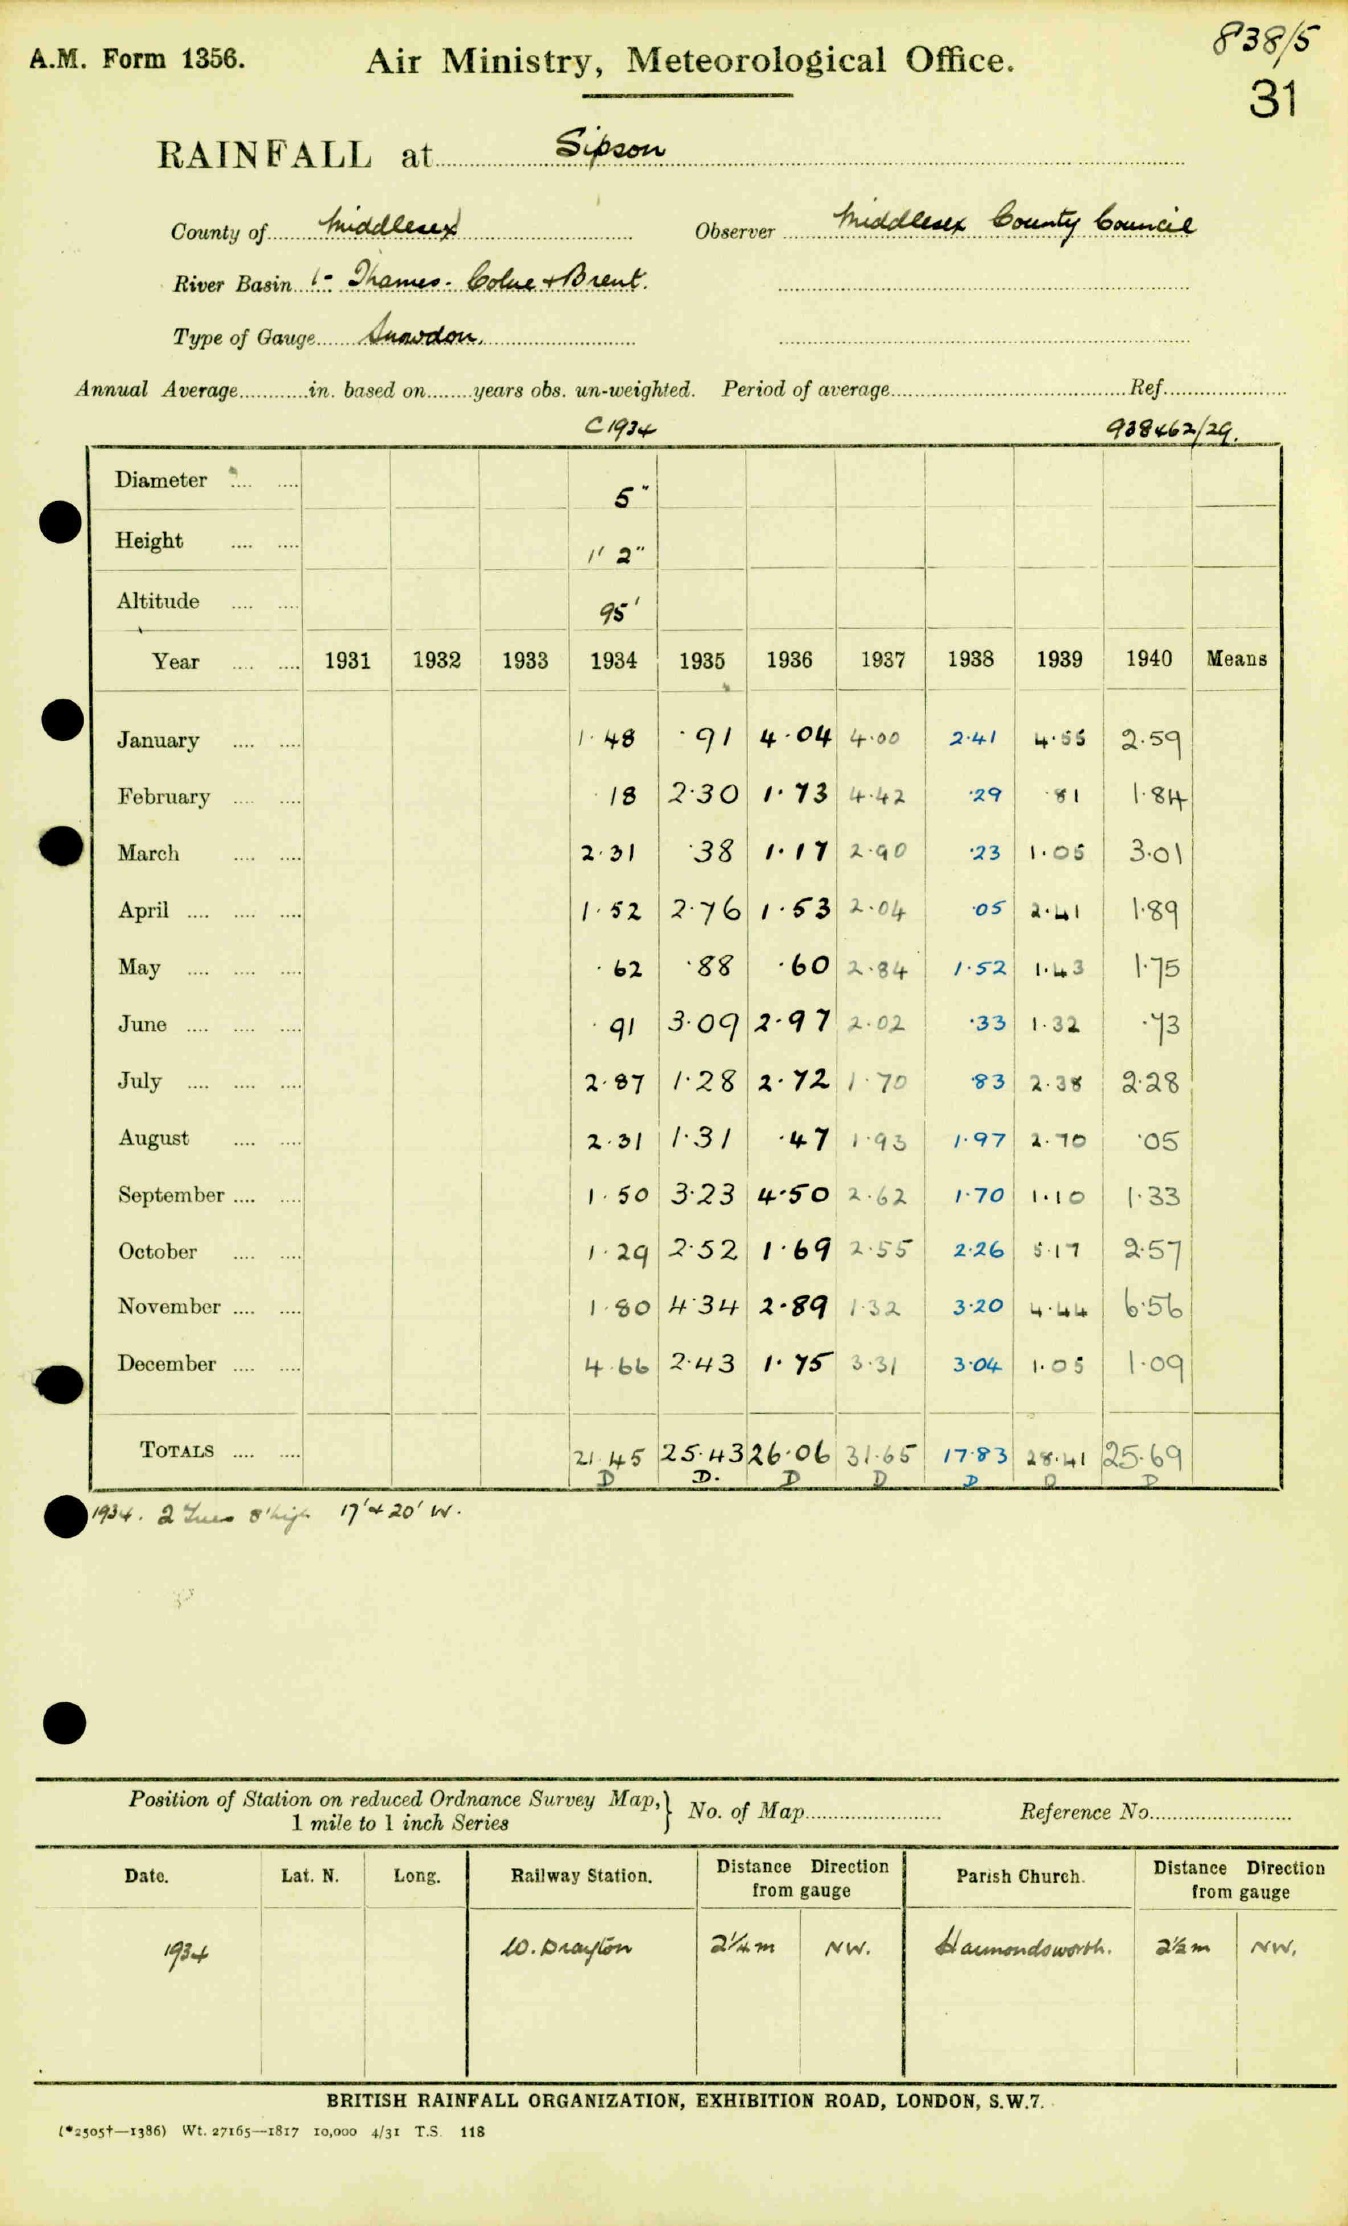 838/5
A.M. Form 1356. Air Ministry, Meteorological Office.
31
RAINFALL at Sipson
County of Middlesex Observer Middlesex County Council
River Basin Thames. Colne + Brent.
Type of Gauge Snowdon.
Annual Average............in. based on.........years obs. un-weighted. Period of average............ Ref............
C1934 938462/29.
Diameter .... .... 5"
Height .... .... 1' 2"
Altitude .... .... 95'
Year .... .... 1931 1932 1933 1934 1935 1936 1937 1938 1939 1940 Means
January .... .... 1.48 .91 4.04 4.00 2.41 4.55 2.59
February .... .... .18 2.30 1.73 4.42 .29 .81 1.84
March .... .... 2.31 .38 1.17 2.90 .23 1.05 3.01
April .... .... .... 1.52 2.76 1.53 2.04 .05 2.41 1.89
May .... .... .... .62 .88 .60 2.84 1.52 1.43 1.75
June .... .... .... .91 3.09 2.97 2.02 .33 1.32 .73
July .... .... .... 2.87 1.28 2.72 1.70 .83 2.38 2.28
August .... .... 2.31 1.31 .47 1.93 1.97 2.70 .05
September .... .... 1.50 3.23 4.50 2.62 1.70 1.10 1.33
October .... .... 1.29 2.52 1.69 2.55 2.26 5.17 2.57
November .... .... 1.80 4.34 2.89 1.32 3.20 4.44 6.56
December .... .... 4.66 2.43 1.75 3.31 3.04 1.05 1.09
TOTALS .... .... 21.45 25.43 26.06 31.65 17.83 28.41 25.69
D D. D D D D D
1934. 2 Trees 8' high 17' + 20' W.
Position of Station on reduced Ordnance Survey Map,} No. of Map............ Reference No............
1 mile to 1 inch Series
Date. Lat. N. Long. Railway Station. Distance Direction from gauge Parish Church. Distance Direction from gauge
1934 W. Drayton 2¼ m NW. Harmondsworth. 2½ m NW.
BRITISH RAINFALL ORGANIZATION, EXHIBITION ROAD, LONDON, S.W.7.
(*2505†—1386) Wt. 27165—1817 10,000 4/31 T.S. 118